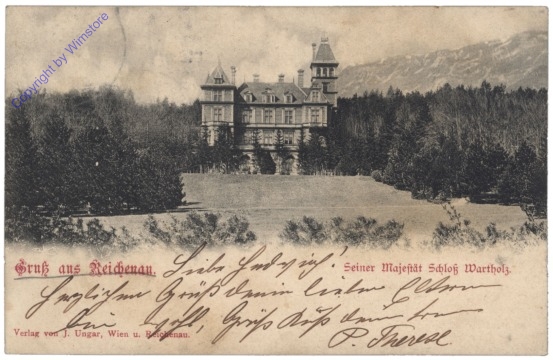 Copyright by Wimstore
Gruß aus Reichenau.
Seiner Majestät Schloß Wartholz.
Liebe Hedwich!
Herzlichen Gruß deine lieben Eltern
Gruß Kuß deine
P. Therese
Verlag von J. Ungar, Wien u. Reichenau.